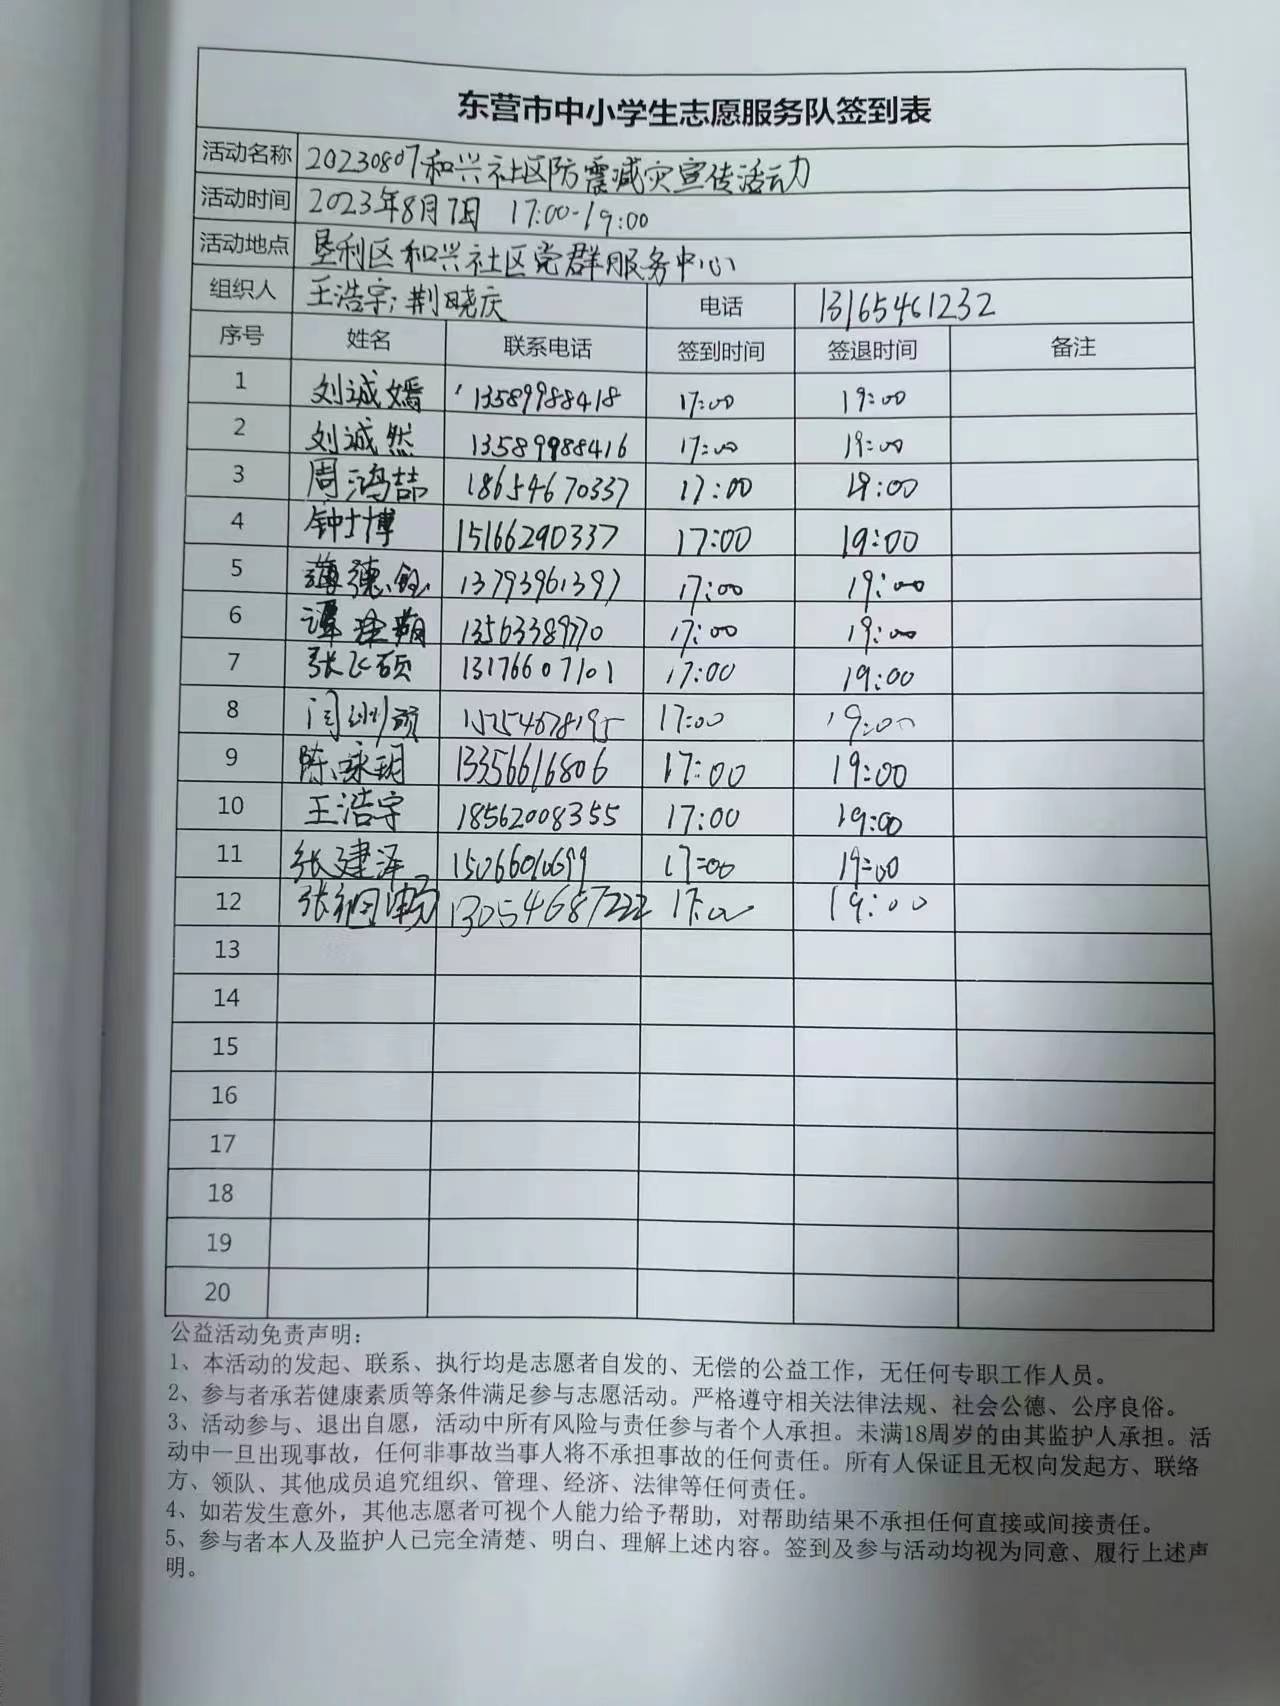 东营市中小学生志愿服务队签到表
活动名称 20230807和兴社区防震减灾宣传活动
活动时间 2023年8月7日 17:00-19:00
活动地点 垦利区和兴社区党群服务中心
组织人 王浩宇;荆晓庆 电话 13165461232
序号 姓名 联系电话 签到时间 签退时间 备注
1 刘诚嫣 13589988418 17:00 19:00
2 刘诚然 13589988416 17:00 19:00
3 周鸿喆 18654670337 17:00 19:00
4 钟士博 15166290337 17:00 19:00
5 13793961397 17:00 19:00
6 13563389770 17:00 19:00
7 张飞硕 13176607101 17:00 19:00
8 17:00 19:00
9 陈咏玥 13356616806 17:00 19:00
10 王浩宇 18562008355 17:00 19:00
11 张建泽 15066010699 17:00 19:00
12 13054687222 17:00 19:00
13
14
15
16
17
18
19
20
公益活动免责声明：
1、本活动的发起、联系、执行均是志愿者自发的、无偿的公益工作，无任何专职工作人员。
2、参与者承若健康素质等条件满足参与志愿活动。严格遵守相关法律法规、社会公德、公序良俗。
3、活动参与、退出自愿，活动中所有风险与责任参与者个人承担。未满18周岁的由其监护人承担。活
动中一旦出现事故，任何非事故当事人将不承担事故的任何责任。所有人保证且无权向发起方、联络
方、领队、其他成员追究组织、管理、经济、法律等任何责任。
4、如若发生意外，其他志愿者可视个人能力给予帮助，对帮助结果不承担任何直接或间接责任。
5、参与者本人及监护人已完全清楚、明白、理解上述内容。签到及参与活动均视为同意、履行上述声
明。